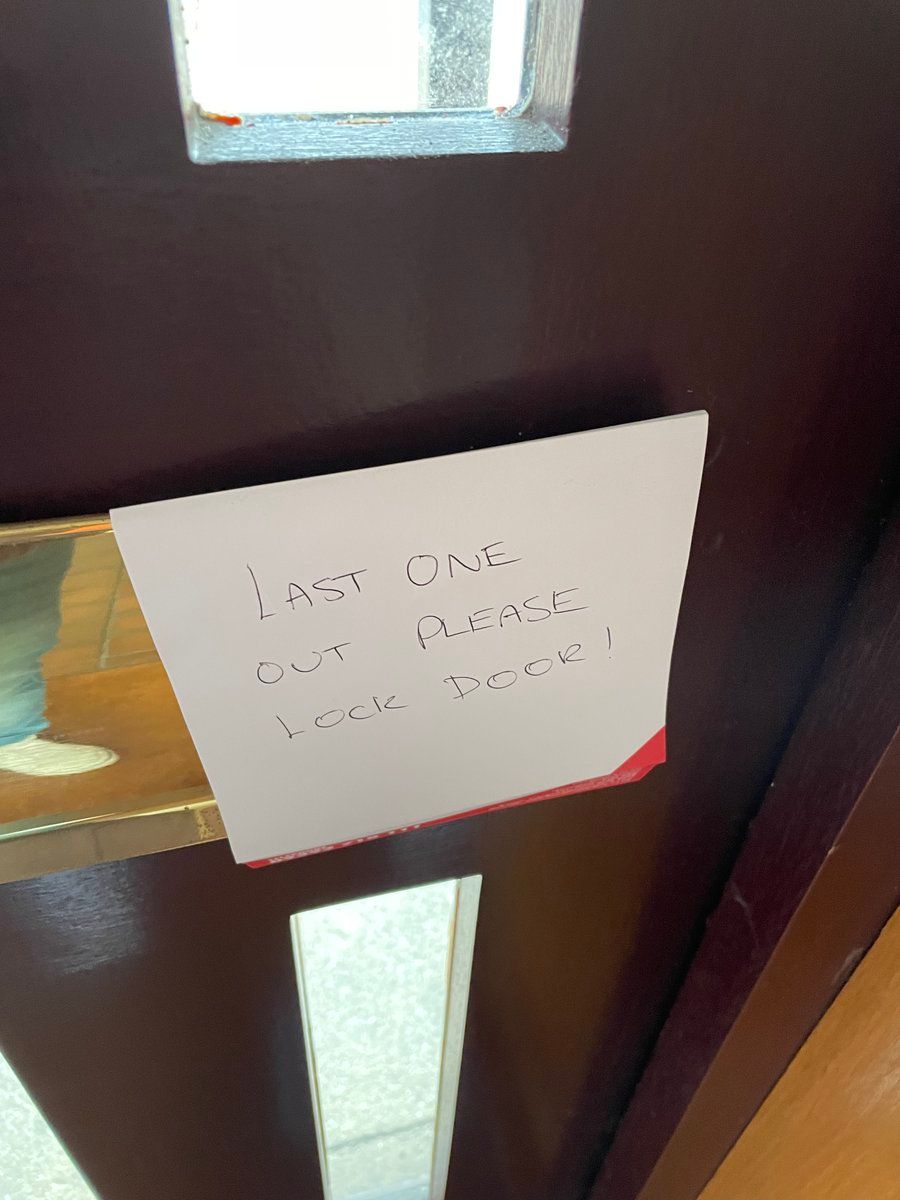 LAST ONE
OUT PLEASE
LOCK DOOR!